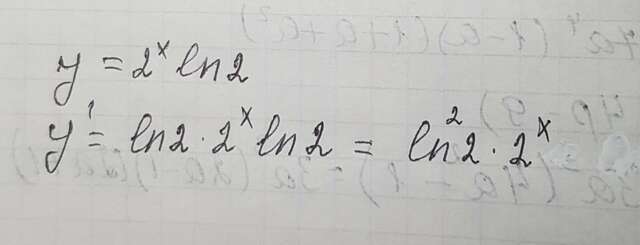 y = 2ˣ ln2
y' = ln2 · 2ˣ ln2 = ln²2 · 2ˣ